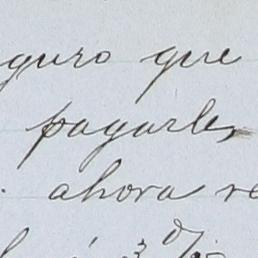 guro que
pagarles
ahora re
3 %